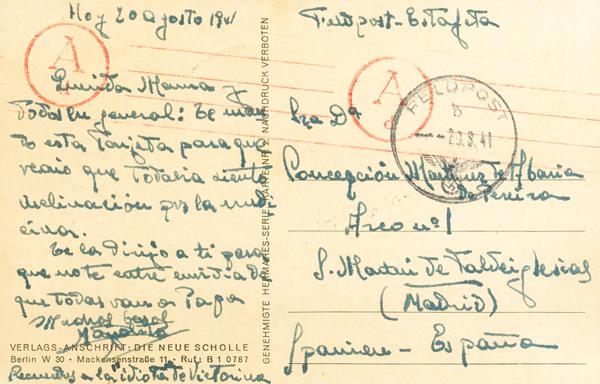 Hoy 20 agosto 1941
Querida Mama y
Todos en general: Te man
do esta Tarjeta para que
veais que Todavia siento
inclinación por la medi
cina.
Te la dirijo a ti para
que no te entre envidia de
que todas van a Papa
Muchos besos
Recuerdos a la idiota de Victorina
VERLAGS-ANSCHRIFT: DIE NEUE SCHOLLE
Berlin W 30 • Mackensenstraße 11 • Ruf: B 1 0787
GENEHMIGTE HERMARES-SERIE, KARTE NR. 2. NACHDRUCK VERBOTEN
Feldpost-Estafeta
A
a
A
a
FELDPOST
b
20.8.41
Sra Dª
Concepción Martinez de
Arco nº 1
S. Martin de Valdeiglesias
(Madrid)
Spanien - España